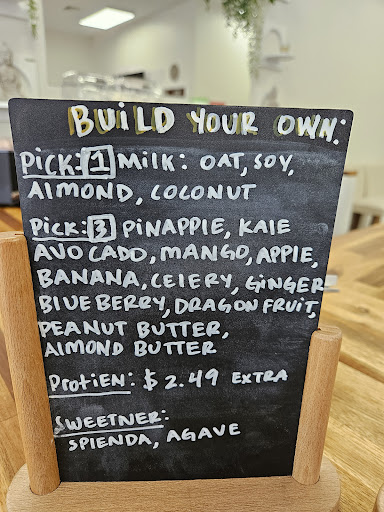 BUiLD YOUR OWN:
PiCK: 1 MiLK: OAT, SOY,
AlMOND, COCONUT
PiCK: 3 PiNAPPlE, KAlE
AVOCADO, MANGO, APPlE,
BANANA, CElERY, GiNGER
BlUEBERRY, DRAGON FRUiT,
PEANUT BUTTER,
AlMOND BUTTER
PROTiEN: $2.49 EXTRA
SWEETNER:
SPlENDA, AGAVE